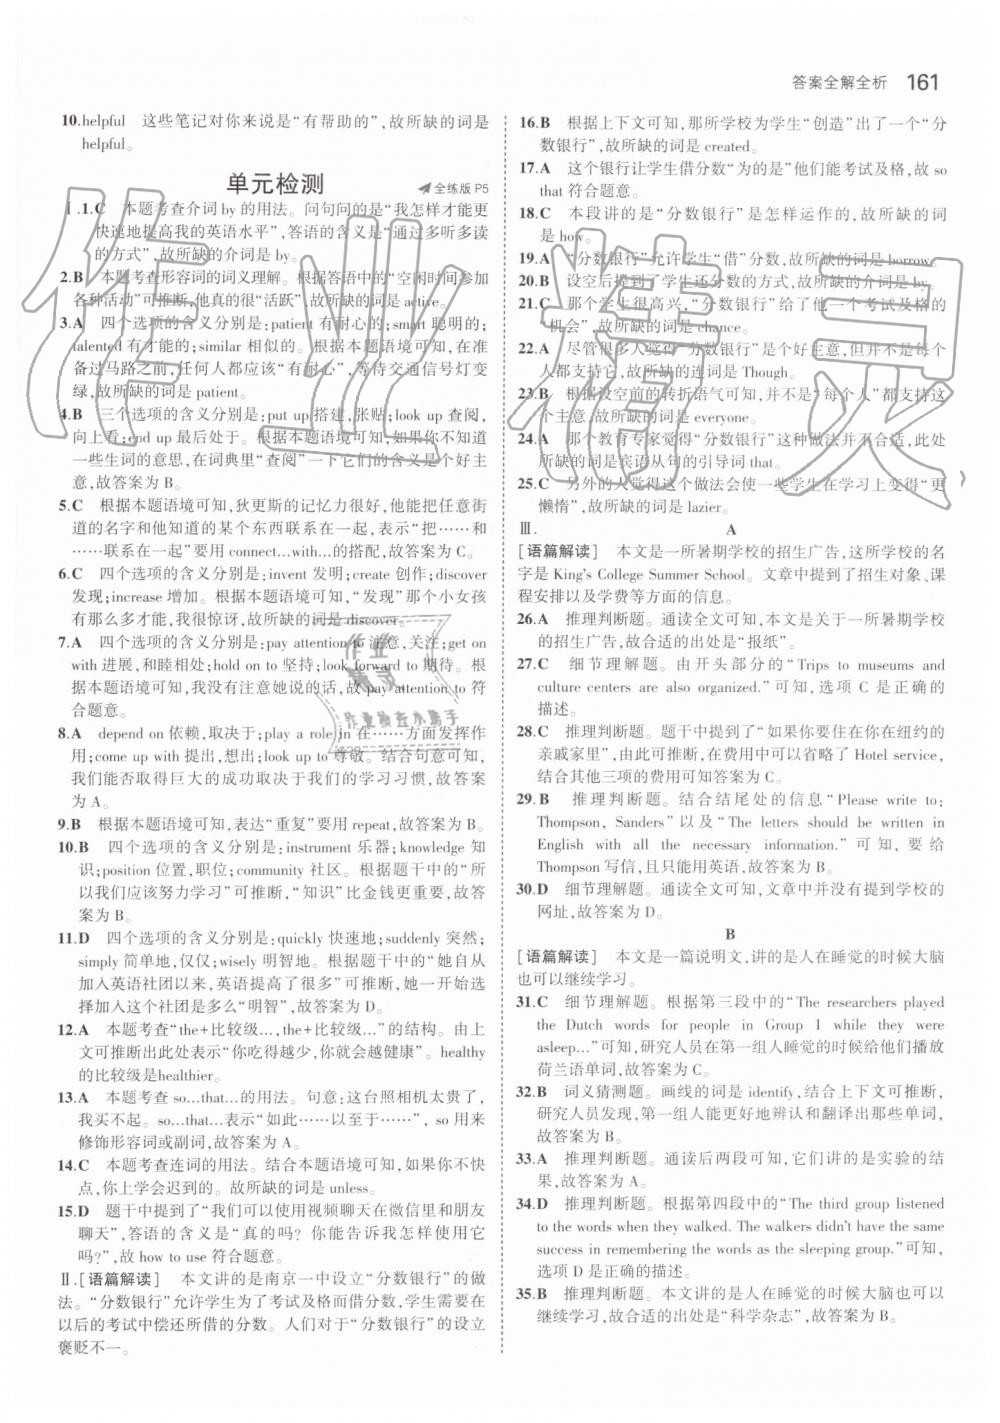 答案全解全析 161
10.helpful 这些笔记对你来说是“有帮助的”,故所缺的词是
helpful。
单元检测 全练版 P5
Ⅰ.1.C 本题考查介词 by 的用法。问句问的是“我怎样才能更
快速地提高我的英语水平”,答语的含义是“通过多听多读
的方式”,故所缺的介词是 by。
2.B 本题考查形容词的词义理解。根据答语中的“空闲时参加
各种活动”可推断,他真的很“活跃”,故所缺的词是 active。
3.A 四个选项的含义分别是:patient 有耐心的;smart 聪明的;
talented 有才能的;similar 相似的。根据本题语境可知,在准
备过马路之前,任何人都应该“有耐心”,等待交通信号灯变
绿,故所缺的词是 patient。
4.B 三个选项的含义分别是:put up 搭建,张贴;look up 查阅,
向上看;end up 最后处于。根据本题语境可知,如果你不知道
一些生词的意思,在词典里“查阅”一下它们的含义是个好主
意,故答案为 B。
5.C 根据本题语境可知,狄更斯的记忆力很好,他能把任意街
道的名字和他知道的某个东西联系在一起,表示“把……和
……联系在一起”要用 connect...with...的搭配,故答案为 C。
6.C 四个选项的含义分别是:invent 发明;create 创作;discover
发现;increase 增加。根据本题语境可知,“发现”那个小女孩
有那么多才能,我很惊讶,故所缺的词是 discover。
7.A 四个选项的含义分别是:pay attention to 注意,关注;get on
with 进展,和睦相处;hold on to 坚持;look forward to 期待。根
据本题语境可知,我没有注意她说的话,故 pay attention to 符
合题意。
8.A depend on 依赖,取决于;play a role in 在……方面发挥作
用;come up with 提出,想出;look up to 尊敬。结合句意可知,
我们能否取得巨大的成功取决于我们的学习习惯,故答案
为 A。
9.B 根据本题语境可知,表达“重复”要用 repeat,故答案为 B。
10.B 四个选项的含义分别是:instrument 乐器;knowledge 知
识;position 位置,职位;community 社区。根据题干中的“所
以我们应该努力学习”可推断,“知识”比金钱更重要,故答
案为 B。
11.D 四个选项的含义分别是:quickly 快速地;suddenly 突然;
simply 简单地,仅仅;wisely 明智地。根据题干中的“她自从
加入英语社团以来,英语提高了很多”可推断,设空处表示选
择加入这个社团是多么“明智”,故答案为 D。
12.A 本题考查“the+比较级…,the+比较级…”的结构。由上
文可推断出此处表示“你吃得越少,你就会越健康”。healthy
的比较级是healthier。
13.A 本题考查 so...that...的用法。句意:这台照相机太贵了,
我买不起。so...that...表示“如此……以至于……”, so 用来
修饰形容词或副词,故答案为 A。
14.C 本题考查连词的用法。结合本题语境可知,如果你不快
点,你上学会迟到的。故所缺的词是 unless。
15.D 题干中提到了“我们可以使用视频聊天在微信里和朋友
聊天”,答语的含义是“真的吗? 你能告诉我怎样使用它
吗?”,故 how to use 符合题意。
Ⅱ.[语篇解读] 本文讲的是南京一中设立“分数银行”的做
法。“分数银行”允许学生为了考试及格而借分数,学生需要在
以后的考试中偿还所借的分数。人们对于“分数银行”的设立
褒贬不一。
16.B 根据上下文可知,那所学校为学生“创造”出了一个“分
数银行”,故所缺的词是 created。
17.A 这个银行让学生借分数“为的是”他们能考试及格,故 so
that 符合题意。
18.C 本段讲的是“分数银行”是怎样运作的,故所缺的词
是 how。
19.A “分数银行”允许学生“借”分数,故所缺的词是 borrow。
20.B 设空后提到了学生还分数的方式,故所缺的介词是 by。
21.C 那个学生很高兴,“分数银行”给了他一个考试及格的
“机会”,故所缺的词是 chance。
22.A 尽管很多人觉得“分数银行”是个好主意,但并不是每个
人都支持它,故所缺的连词是 Though。
23.B 根据设空前的转折语气可知,并不是“每个人”都支持这
个主意,故所缺的词是 everyone。
24.A 那个教育专家觉得“分数银行”这种做法并不合适,此处
所缺的词是宾语从句的引导词 that。
25.C 另外的人觉得这个做法会使一些学生在学习上变得“更
懒惰”,故所缺的词是 lazier。
Ⅲ. A
[语篇解读] 本文是一所暑期学校的招生广告,这所学校的名
字是 King's College Summer School。文章中提到了招生对象、课
程安排以及学费等方面的信息。
26.A 推理判断题。通读全文可知,本文是关于一所暑期学校
的招生广告,故合适的出处是“报纸”。
27.C 细节理解题。由开头部分的“Trips to museums and
culture centers are also organized.”可知,选项 C 是正确的
描述。
28.C 推理判断题。题干中提到了“如果你要住在你在纽约的
亲戚家里”,由此可推断,在费用中可以省略了 Hotel service,
结合其他三项的费用可知答案为 C。
29.B 推理判断题。结合结尾处的信息“Please write to:
Thompson, Sanders”以及“The letters should be written in
English with all the necessary information.”可知,要给
Thompson 写信,且只能用英语,故答案为 B。
30.D 细节理解题。通读全文可知,文章中并没有提到学校的
网址,故答案为 D。
B
[语篇解读] 本文是一篇说明文,讲的是人在睡觉的时候大脑
也可以继续学习。
31.C 细节理解题。根据第三段中的“The researchers played
the Dutch words for people in Group 1 while they were
asleep...”可知,研究人员在第一组人睡觉的时候给他们播放
荷兰语单词,故答案为 C。
32.B 词义猜测题。画线的词是 identify,结合上下文可推断,
研究人员发现,第一组人能更好地辨认和翻译出那些单词,
故答案为 B。
33.A 推理判断题。通读后两段可知,它们讲的是实验的结
果,故答案为 A。
34.D 推理判断题。根据第四段中的“The third group listened
to the words when they walked. The walkers didn't have the same
success in remembering the words as the sleeping group.”可知,
选项 D 是正确的描述。
35.B 推理判断题。本文讲的是人在睡觉的时候大脑可以继续
继续学习,故合适的出处是“科学杂志”,故答案为 B。
作业精灵
作业
精灵
作业检查小助手